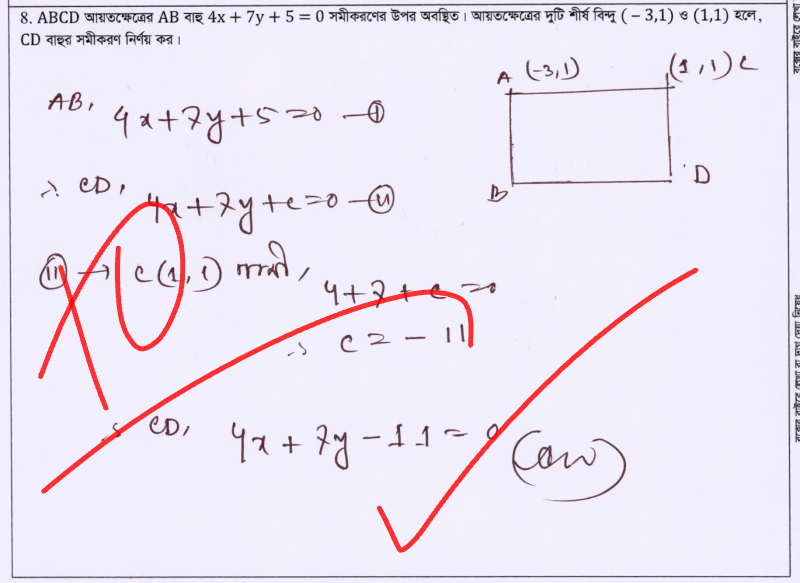 8. ABCD আয়তক্ষেত্রের AB বাহু 4x + 7y + 5 = 0 সমীকরণের উপর অবস্থিত। আয়তক্ষেত্রের দুটি শীর্ষ বিন্দু ( − 3,1) ও (1,1) হলে,
CD বাহুর সমীকরণ নির্ণয় কর।
A (-3,1) (1,1) C
AB, 4x+7y+5=0 —(i)
B D
∴ CD, 4x+7y+c=0 —(ii)
(ii) → C(1,1) গামী,
4+7+c=0
∴ c=-11
∴ CD, 4x+7y-11=0 (Ans)